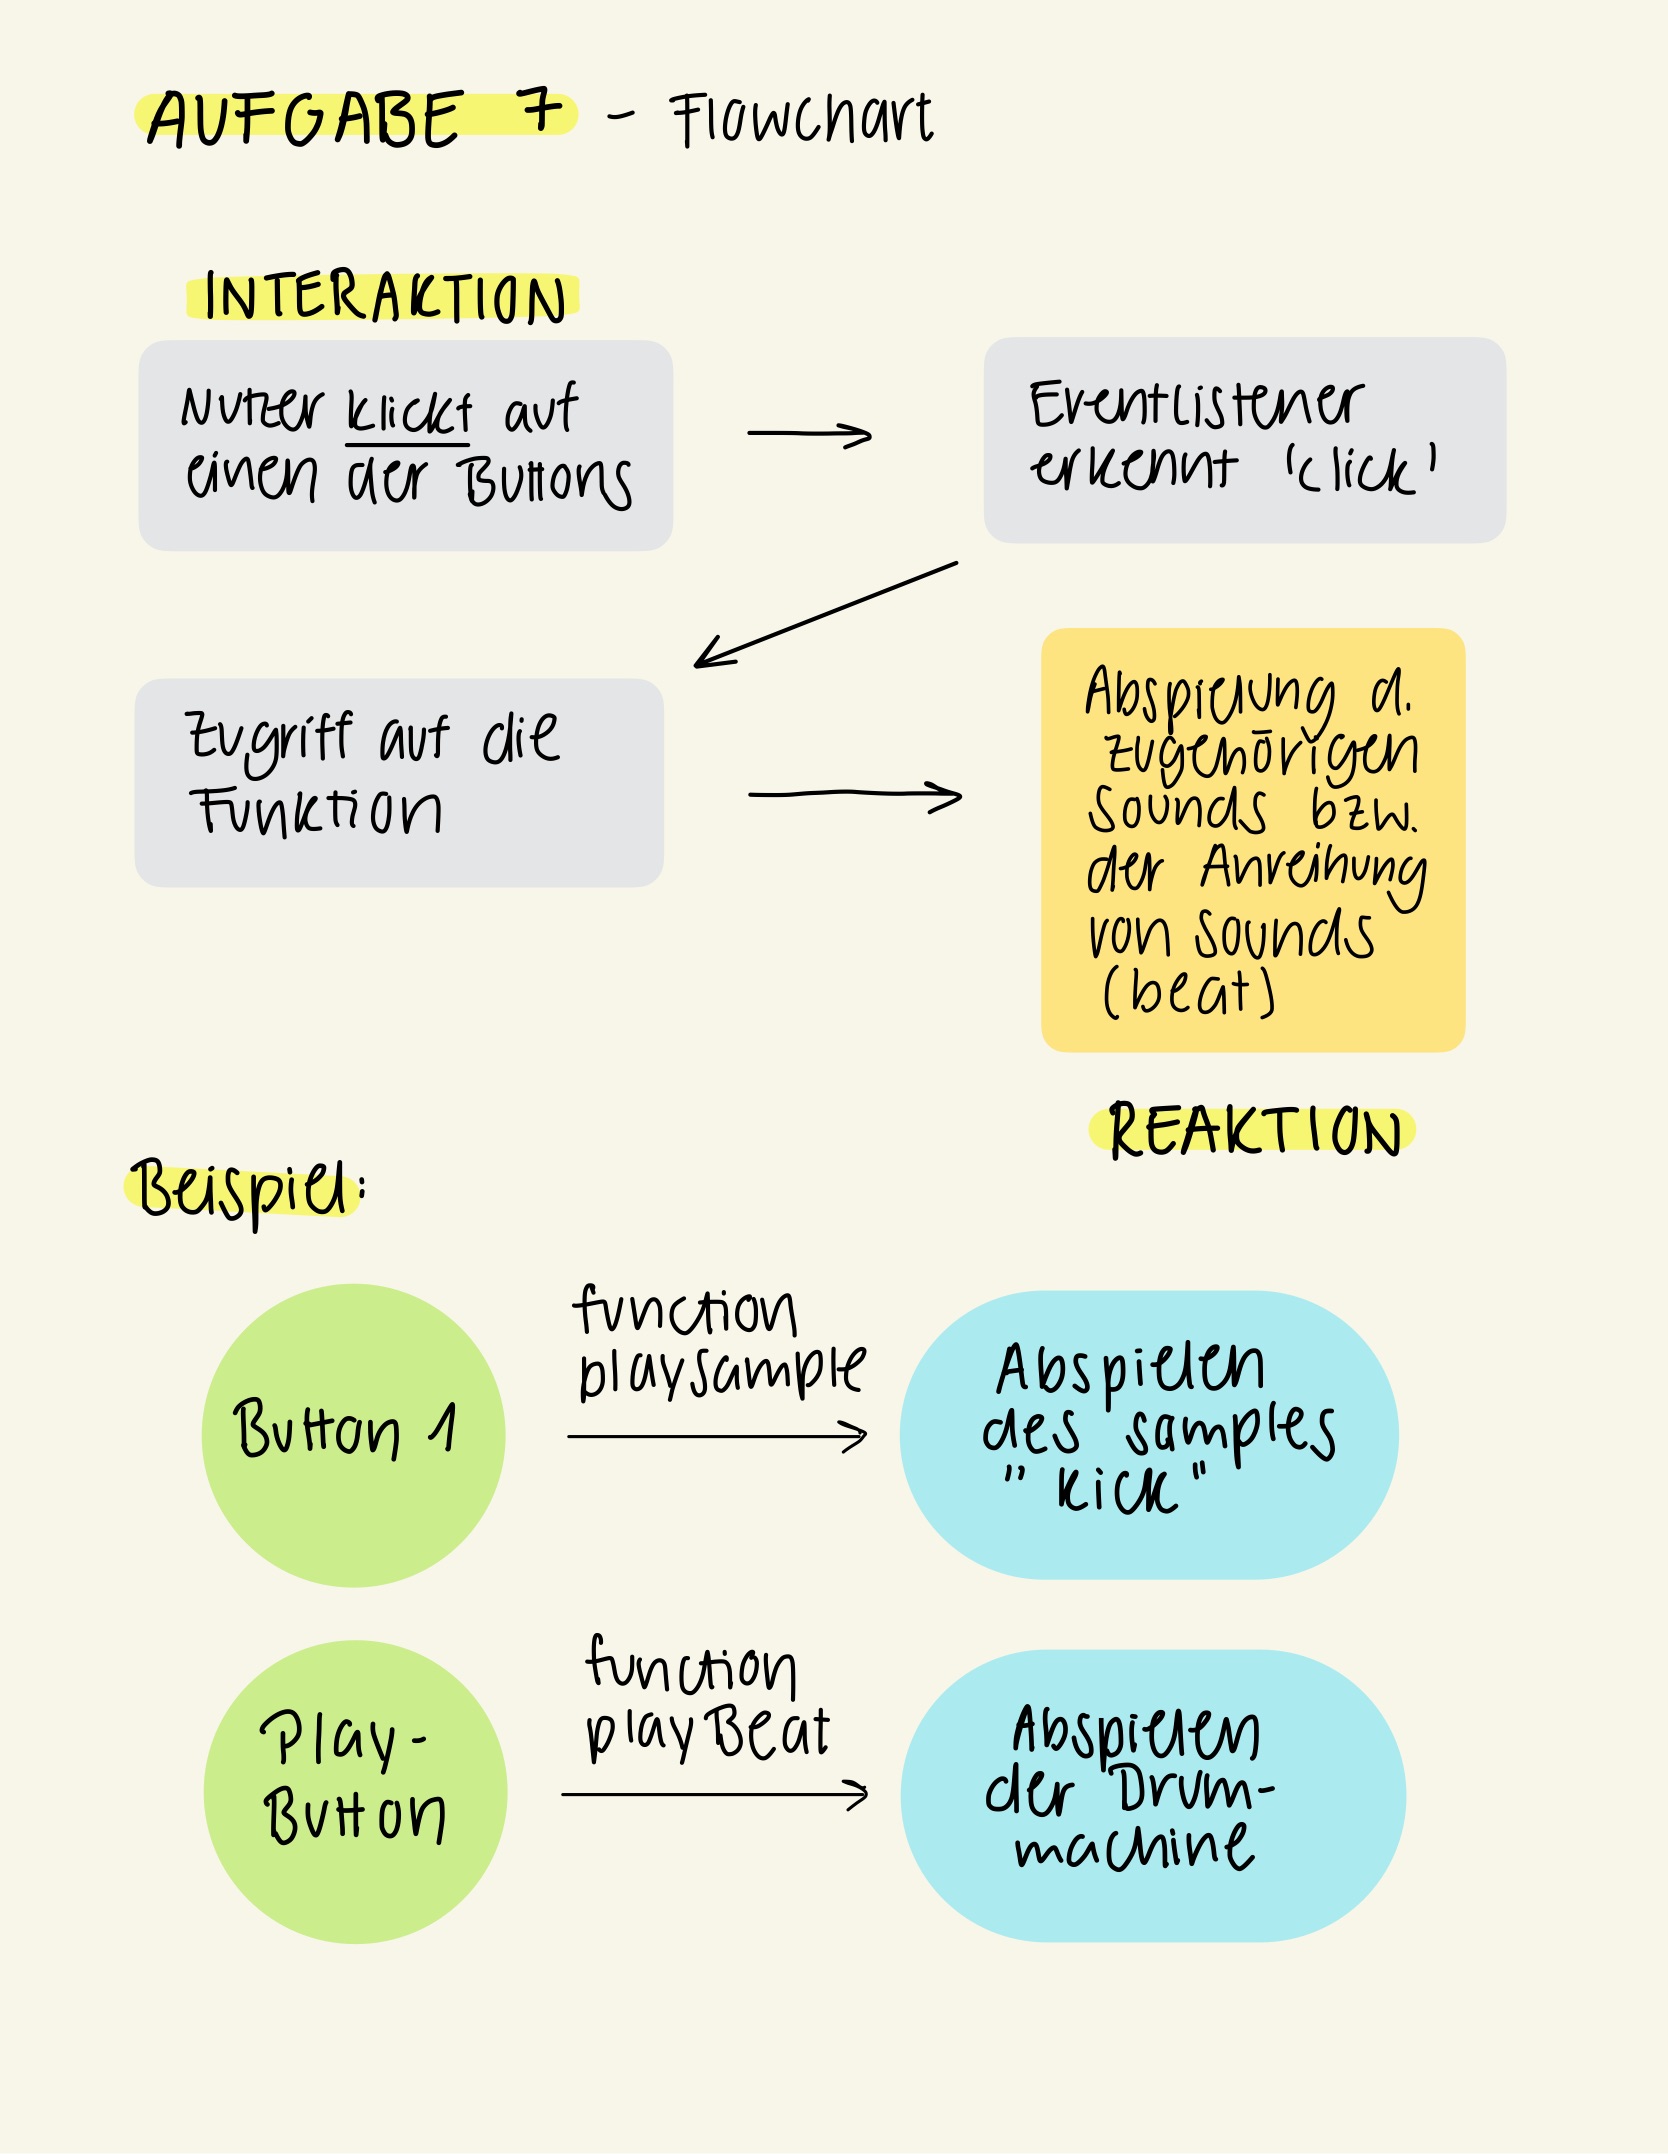 AUFGABE 7 - Flowchart
INTERAKTION
Nutzer klickt auf
einen der Buttons
Eventlistener
erkennt 'click'
Zugriff auf die
Funktion
Abspielung d.
zugehörigen
Sounds bzw.
der Anreihung
von Sounds
(beat)
REAKTION
Beispiel:
Button 1
function
playsample
Abspielen
des samples
"kick"
Play-
Button
function
playBeat
Abspielen
der Drum-
machine